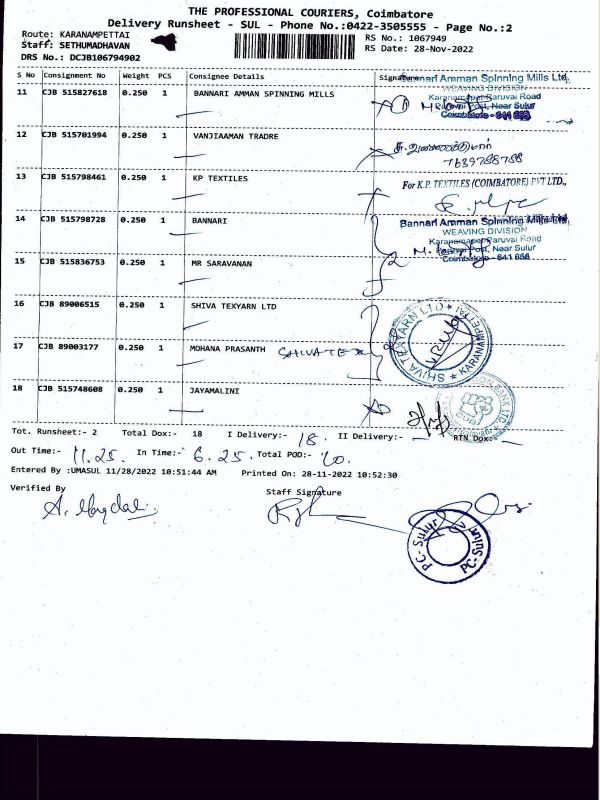 THE PROFESSIONAL COURIERS, Coimbatore
Delivery Runsheet - SUL - Phone No.:0422-3505555 - Page No.:2
Route: KARANAMPETTAI
RS No.: 1067949
Staff: SETHUMADHAVAN
RS Date: 28-Nov-2022
DRS No.: DCJB106794902
S No Consignment No Weight PCS Consignee Details Signature
11 CJB 515827618 0.250 1 BANNARI AMMAN SPINNING MILLS
Bannari Amman Spinning Mills Ltd.
WEAVING DIVISION
Karanampet-Paruvai Road
Post, Near Sulur
Coimbatore - 641 658
12 CJB 515701994 0.250 1 VANJIAAMAN TRADRE
7639788788
13 CJB 515798461 0.250 1 KP TEXTILES
For K.P. TEXTILES (COIMBATORE) PVT LTD.,
14 CJB 515798728 0.250 1 BANNARI
Bannari Amman Spinning Mills Ltd.
WEAVING DIVISION
Karanampet-Paruvai Road
Post, Near Sulur
Coimbatore - 641 658
15 CJB 515836753 0.250 1 MR SARAVANAN
2
16 CJB 89006515 0.250 1 SHIVA TEXYARN LTD
SHIVA TEXYARN LTD ★ KARANAMPETTAI ★
17 CJB 89003177 0.250 1 MOHANA PRASANTH SHIVA TEX
18 CJB 515748608 0.250 1 JAYAMALINI
Tot. Runsheet:- 2 Total Dox:- 18 I Delivery:- 18. II Delivery:- — RTN Dox:- —
Out Time:- 11.25. In Time:- 6.25. Total POD:- 10.
Entered By :UMASUL 11/28/2022 10:51:44 AM Printed On: 28-11-2022 10:52:30
Verified By
Staff Signature
PC-Sulur PC-Sulur